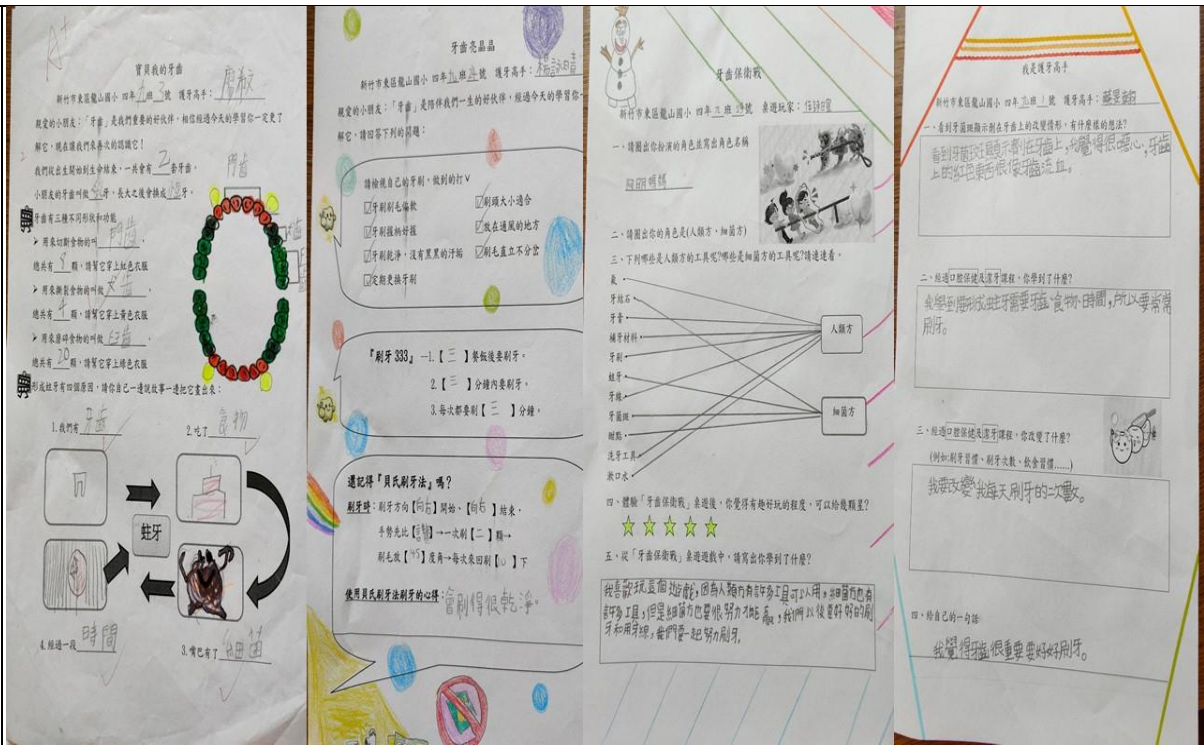 A+
寶貝我的牙齒
新竹市東區龍山國小 四年九班3號 護牙高手：
親愛的小朋友：「牙齒」是我們重要的好伙伴，相信經過今天的學習你一定更了
解它，現在讓我們來再次的認識它！
我們從出生開始到生命結束，一共會有2套牙齒。
小朋友的牙齒叫做乳牙，長大之後會換成恆牙。
牙齒有三種不同形狀和功能
➢ 用來切斷食物的叫門齒，
總共有8顆，請幫它穿上紅色衣服
➢ 用來撕裂食物的叫做犬齒，
總共有4顆，請幫它穿上黃色衣服
➢ 用來磨碎食物的叫做臼齒，
總共有20顆，請幫它穿上綠色衣服
門齒
形成蛀牙有四個原因，請你自己一邊說故事一邊把它畫出來：
1.我們有牙齒
2.吃了食物
蛀牙
4.經過一段時間
3.嘴巴有了細菌
牙齒亮晶晶
新竹市東區龍山國小 四年九班 號 護牙高手：
親愛的小朋友：「牙齒」是陪伴我們一生的好伙伴，經過今天的學習你一
解它，請回答下列的問題：
請檢視自己的牙刷，做到的打ˇ
☑牙刷刷毛偏軟 ☑刷頭大小適合
☑牙刷握柄好握 ☑放在通風的地方
☑牙刷乾淨，沒有黑黑的汙垢 ☑刷毛直立不分岔
☑定期更換牙刷
『刷牙 333』—1.【三】餐飯後要刷牙。
2.【三】分鐘內要刷牙。
3.每次都要刷【三】分鐘。
還記得『貝氏刷牙法』嗎？
刷牙時：刷牙方向【向右】開始、【向右】結束，
手勢先比【 】→一次刷【二】顆→
刷毛放【45】度角→每次來回刷【10】下
使用貝氏刷牙法刷牙的心得：會刷得很乾淨。
牙齒保衛戰
新竹市東區龍山國小 四年九班 號 桌遊玩家：
一、請圈出你扮演的角色並寫出角色名稱
媽媽
二、請圈出你的角色是(人類方、細菌方)
三、下列哪些是人類方的工具呢?哪些是細菌方的工具呢?請連連看。
氟
牙結石
牙膏
補牙材料
牙刷
蛀牙
牙線
牙菌斑
甜點
洗牙工具
漱口水
人類方
細菌方
四、體驗「牙齒保衛戰」桌遊後，你覺得有趣好玩的程度，可以給幾顆星?
五、從「牙齒保衛戰」桌遊遊戲中，請寫出你學到了什麼?
我喜歡玩這個遊戲，因為人類方有許多工具可以用，細菌方也有
許多工具，但是細菌方也要很努力才能贏，我們以後要好好的刷
牙和用牙線，我們要一起努力刷牙。
我是護牙高手
新竹市東區龍山國小 四年九班1號 護牙高手：
一、看到牙菌斑顯示劑在牙齒上的改變情形，有什麼樣的想法?
看到牙菌斑顯示劑在牙齒上，我覺得很噁心，牙齒
上的紅色東西很像牙齒流血。
二、經過口腔保健及潔牙課程，你學到了什麼?
我學到要形成蛀牙需要牙齒、食物、時間，所以要常常
刷牙。
三、經過口腔保健及潔牙課程，你改變了什麼?
(例如:刷牙習慣、刷牙次數、飲食習慣……)
我要改變我每天刷牙的次數。
四、給自己的一句話:
我覺得牙齒很重要要好好刷牙。